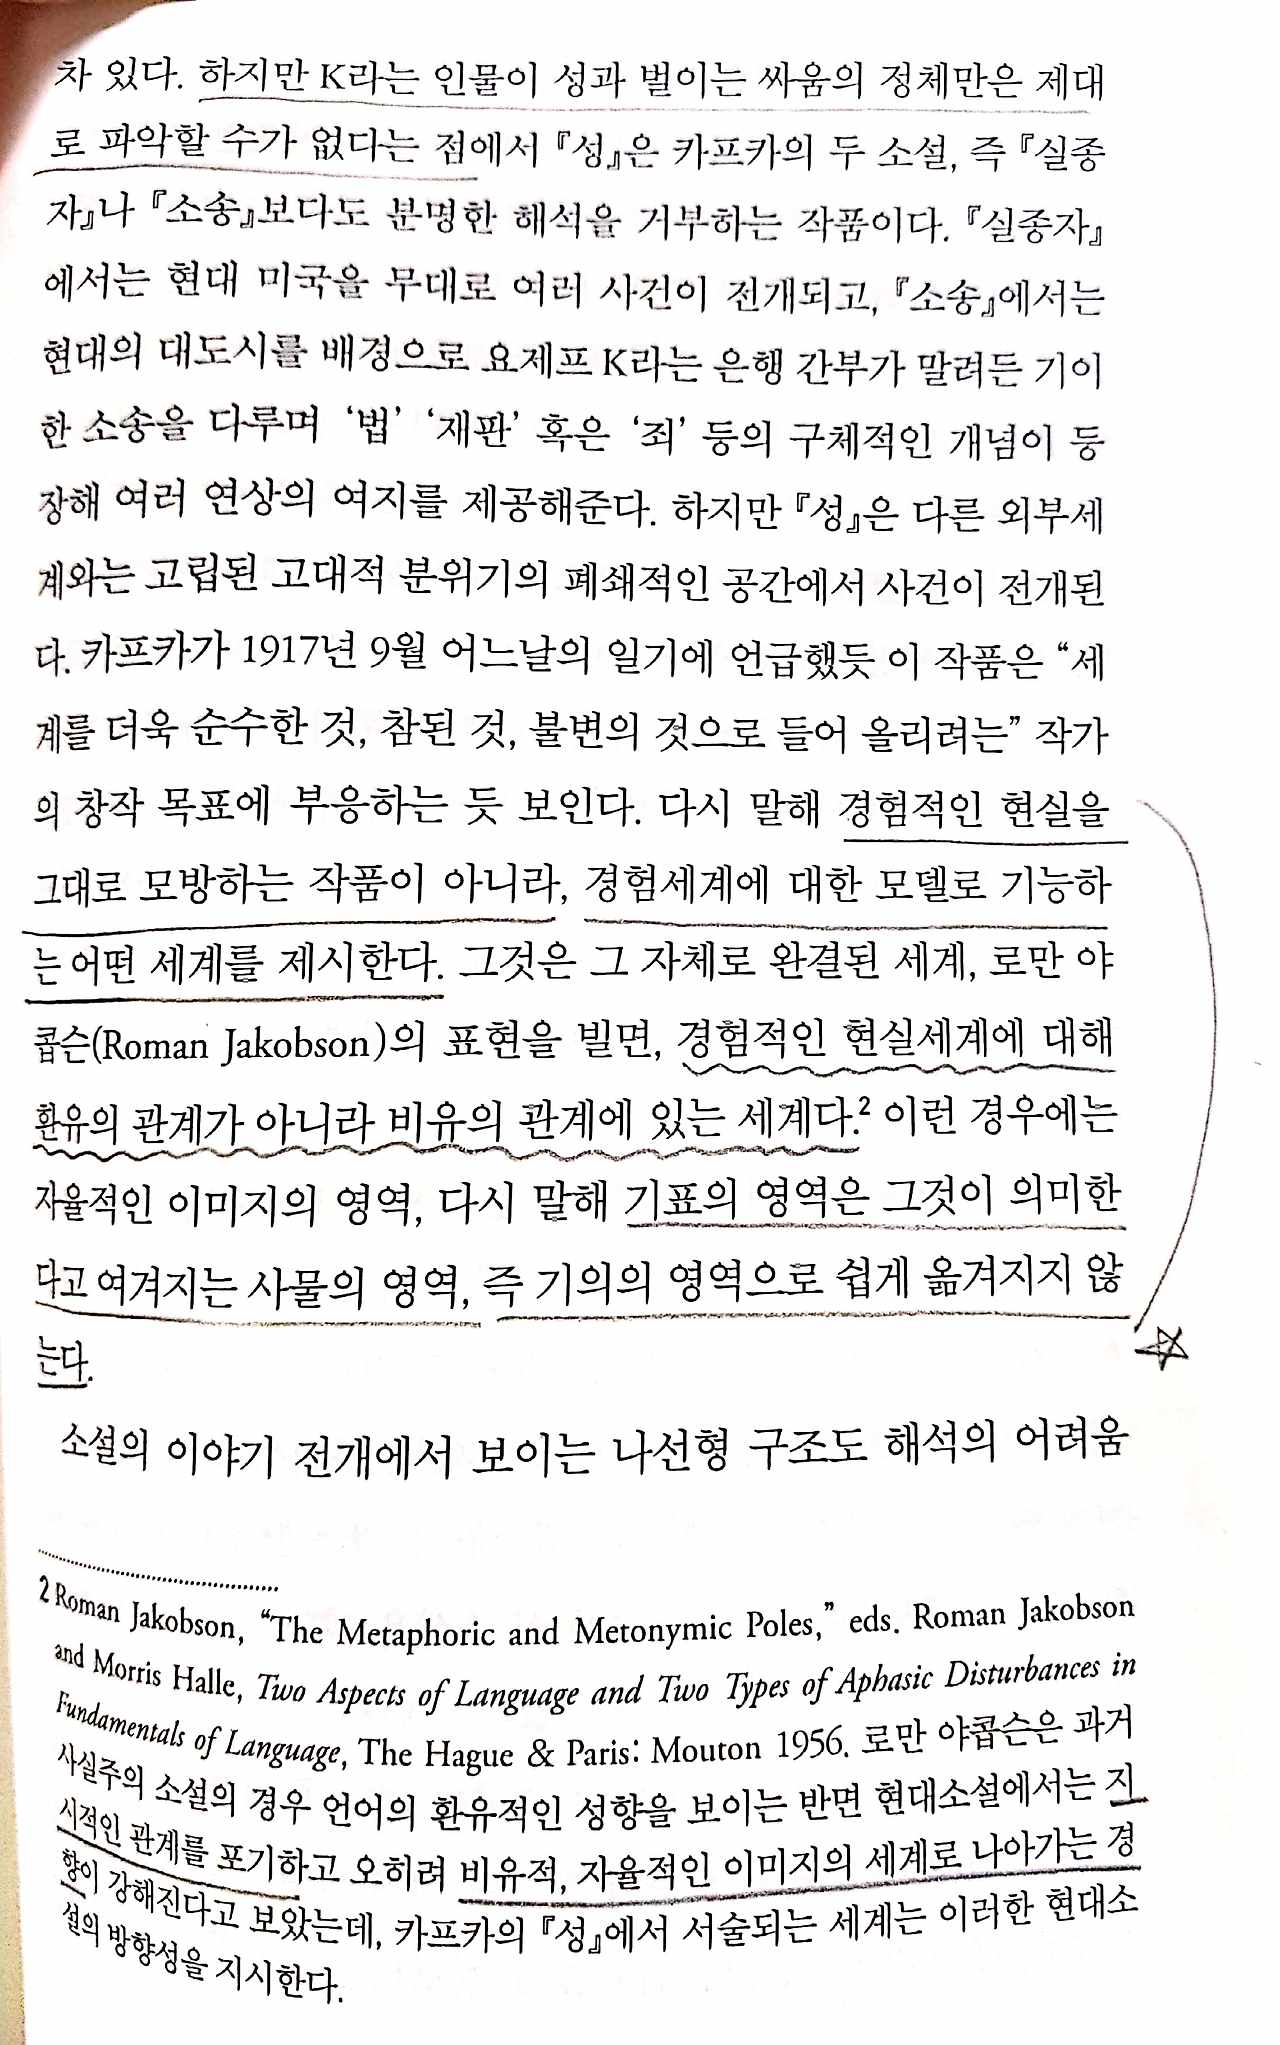 차 있다. 하지만 K라는 인물이 성과 벌이는 싸움의 정체만은 제대
로 파악할 수가 없다는 점에서 『성』은 카프카의 두 소설, 즉 『실종
자』나 『소송』보다도 분명한 해석을 거부하는 작품이다. 『실종자』
에서는 현대 미국을 무대로 여러 사건이 전개되고, 『소송』에서는
현대의 대도시를 배경으로 요제프 K라는 은행 간부가 말려든 기이
한 소송을 다루며 ‘법’ ‘재판’ 혹은 ‘죄’ 등의 구체적인 개념이 등
장해 여러 연상의 여지를 제공해준다. 하지만 『성』은 다른 외부세
계와는 고립된 고대적 분위기의 폐쇄적인 공간에서 사건이 전개된
다. 카프카가 1917년 9월 어느날의 일기에 언급했듯 이 작품은 “세
계를 더욱 순수한 것, 참된 것, 불변의 것으로 들어 올리려는” 작가
의 창작 목표에 부응하는 듯 보인다. 다시 말해 경험적인 현실을
그대로 모방하는 작품이 아니라, 경험세계에 대한 모델로 기능하
는 어떤 세계를 제시한다. 그것은 그 자체로 완결된 세계, 로만 야
콥슨(Roman Jakobson)의 표현을 빌면, 경험적인 현실세계에 대해
환유의 관계가 아니라 비유의 관계에 있는 세계다.2 이런 경우에는
자율적인 이미지의 영역, 다시 말해 기표의 영역은 그것이 의미한
다고 여겨지는 사물의 영역, 즉 기의의 영역으로 쉽게 옮겨지지 않
는다.
소설의 이야기 전개에서 보이는 나선형 구조도 해석의 어려움
2 Roman Jakobson, “The Metaphoric and Metonymic Poles,” eds. Roman Jakobson
and Morris Halle, Two Aspects of Language and Two Types of Aphasic Disturbances in
Fundamentals of Language, The Hague & Paris: Mouton 1956. 로만 야콥슨은 과거
사실주의 소설의 경우 언어의 환유적인 성향을 보이는 반면 현대소설에서는 지
시적인 관계를 포기하고 오히려 비유적, 자율적인 이미지의 세계로 나아가는 경
향이 강해진다고 보았는데, 카프카의 『성』에서 서술되는 세계는 이러한 현대소
설의 방향성을 지시한다.